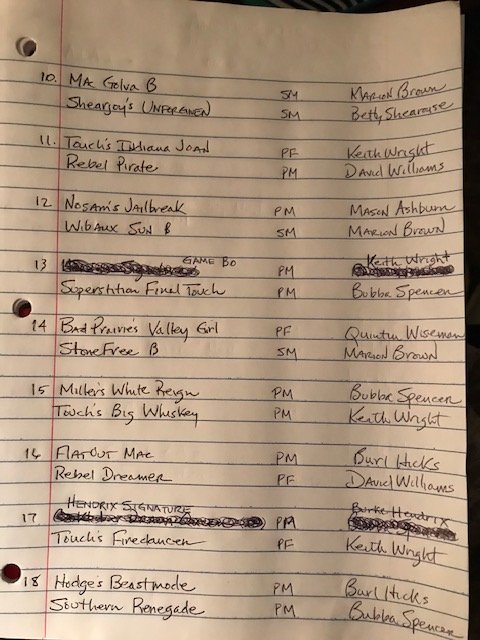 10. Mac Golva B SM Marion Brown
Shearjoy's Unforgiven SM Betty Shearouse
11. Touch's Indiana Joan PF Keith Wright
Rebel Pirate PM David Williams
12 Nosam's Jailbreak PM Mason Ashburn
Wibaux Sun B SM Marion Brown
13 GAME BO PM Keith Wright
Superstition Final Touch PM Bubba Spencer
14 Bad Prairie's Valley Girl PF Quintin Wiseman
Stone Free B SM Marion Brown
15 Miller's White Reign PM Bubba Spencer
Touch's Big Whiskey PM Keith Wright
16 Flatout Mac PM Burl Hicks
Rebel Dreamer PF David Williams
17 HENDRIX SIGNATURE PM Burke Hendrix
Touch's Firedancer PF Keith Wright
18 Hodge's Beastmode PM Burl Hicks
Southern Renegade PM Bubba Spencer